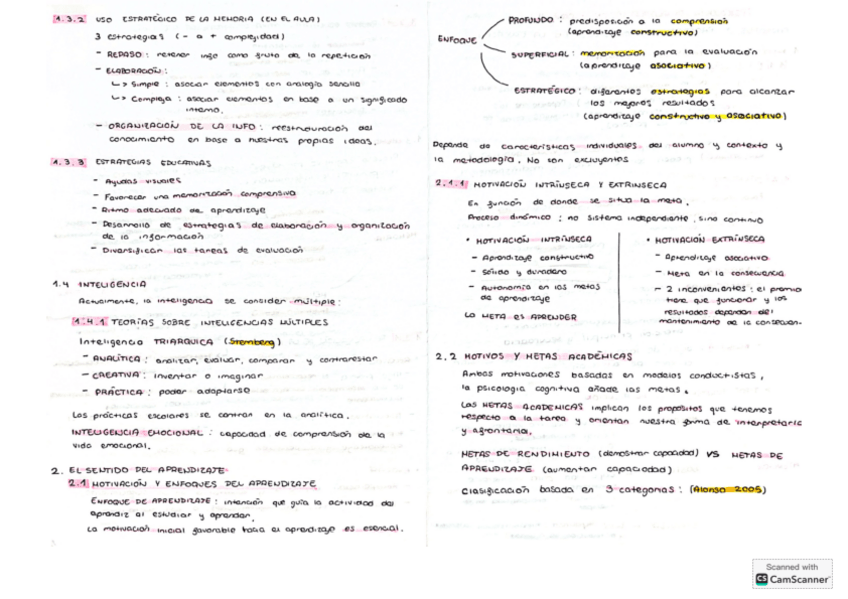 1.3.2 USO ESTRATÉGICO DE LA MEMORIA (EN EL AULA)
3 estrategias (- a + complejidad)
- REPASO: retener info como fruto de la repetición
- ELABORACIÓN:
↳ Simple: asociar elementos con analogía sencilla
↳ Compleja: asociar elementos en base a un significado
interno.
- ORGANIZACIÓN DE LA INFO: reestructuración del
conocimiento en base a nuestras propias ideas.
1.3.3 ESTRATEGIAS EDUCATIVAS
- Ayudas visuales
- Favorecer una memorización comprensiva
- Ritmo adecuado de aprendizaje
- Desarrollo de estrategias de elaboración y organización
de la información
- Diversificar las tareas de evaluación
1.4 INTELIGENCIA
Actualmente, la inteligencia se consider múltiple:
1.4.1 TEORÍAS SOBRE INTELIGENCIAS MÚLTIPLES
Inteligencia TRIÁRQUICA (Sternberg)
- ANALÍTICA: analizar, evaluar, comparar y contrarestar
- CREATIVA: inventar o imaginar
- PRÁCTICA: poder adaptarse
Las prácticas escolares se centran en la analítica.
INTELIGENCIA EMOCIONAL: capacidad de comprensión de la
vida emocional.
2. EL SENTIDO DEL APRENDIZAJE
2.1 MOTIVACIÓN Y ENFOQUES DEL APRENDIZAJE
ENFOQUE DE APRENDIZAJE: intención que guía la actividad del
aprendiz al estudiar y aprender.
La motivación inicial favorable hacia el aprendizaje es esencial.
ENFOQUE
PROFUNDO: predisposición a la comprensión
(aprendizaje constructivo)
SUPERFICIAL: memorización para la evaluación
(aprendizaje asociativo)
ESTRATÉGICO: diferentes estrategias para alcanzar
los mejores resultados
(aprendizaje constructivo y asociativo)
Depende de características individuales del alumno y contexto y
la metodología. No son excluyentes
2.1.1 MOTIVACIÓN INTRÍNSECA Y EXTRÍNSECA
En función de donde se situa la meta.
Proceso dinámico; no sistema independiente, sino continuo
• MOTIVACIÓN INTRÍNSECA
- Aprendizaje constructivo
- Sólido y duradero
- Autonomía en las metas
de aprendizaje
LA META ES APRENDER
• MOTIVACIÓN EXTRÍNSECA
- Aprendizaje asociativo
- Meta en la consecuencia
- 2 inconvenientes: el premio
tiene que funcionar y los
resultados dependen del
mantenimiento de la consecuen.
2.2 MOTIVOS Y METAS ACADÉMICAS
Ambas motivaciones basadas en modelos conductistas,
la psicología cognitiva añade las metas.
Las METAS ACADÉMICAS implican los propósitos que tenemos
respecto a la tarea y orientan nuestra forma de interpretarla
y afrontarla.
METAS DE RENDIMIENTO (demostrar capacidad) VS METAS DE
APRENDIZAJE (aumentar capacidad)
Clasificación basada en 3 categorías: (Alonso 2005)
Scanned with
CS CamScanner